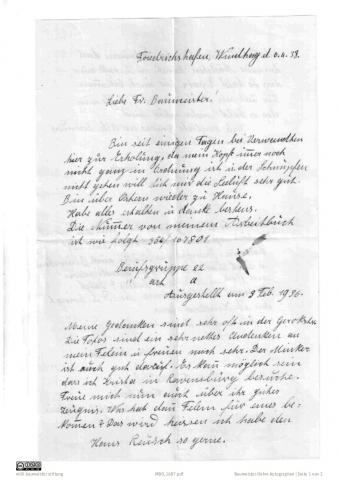 Friedrichshafen, Windhag d. 6.4.38.
Liebe Fr. Baumeister!
Bin seit einigen Tagen bei Verwandten
hier zur Erholung, da mein Kopf immer noch
nicht ganz in Ordnung ist u. der Schnupfen
nicht gehen will tut mir die Seeluft sehr gut.
Bin über Ostern wieder zu Hause.
Habe alles erhalten u. danke bestens.
Die Nummer von meinem Arbeitbuch
ist wie folgt 364/107801
Berufsgruppe 22
art a
Ausgestellt am 3 Feb. 1936.
Meine Gedanken sind sehr oft in der Gerokstr.
Die Fotos sind ein sehr nettes Andenken an
mein u freuen mich sehr. Der
ist auch gut darauf. Es kann möglich sein
dass ich in Ravensburg besuche.
Freue mich nun auch über ihr gutes
Zeugnis. Was hat denn für eine be-
kommen? Das wird heissen ich habe den
Hans Reusch so gerne.
willi baumeister stiftung
Baumeister-Archiv Autographen | Seite 1 von 2